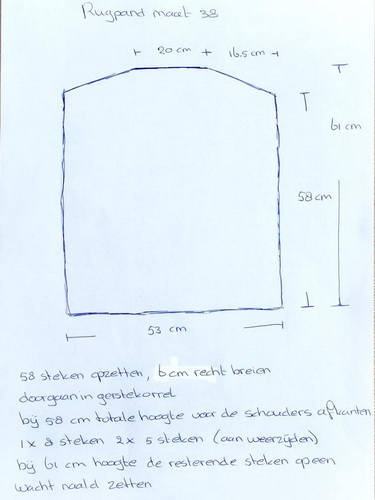 Rugpand maat 38
20 cm
16.5 cm
61 cm
58 cm
53 cm
58 steken opzetten, 6 cm recht breien
doorgaan in gerstekorrel
bij 58 cm totale hoogte voor de schouders afkanten
1 x 8 steken 2 x 5 steken (aan weerzijden)
bij 61 cm hoogte de resterende steken op een
wacht naald zetten